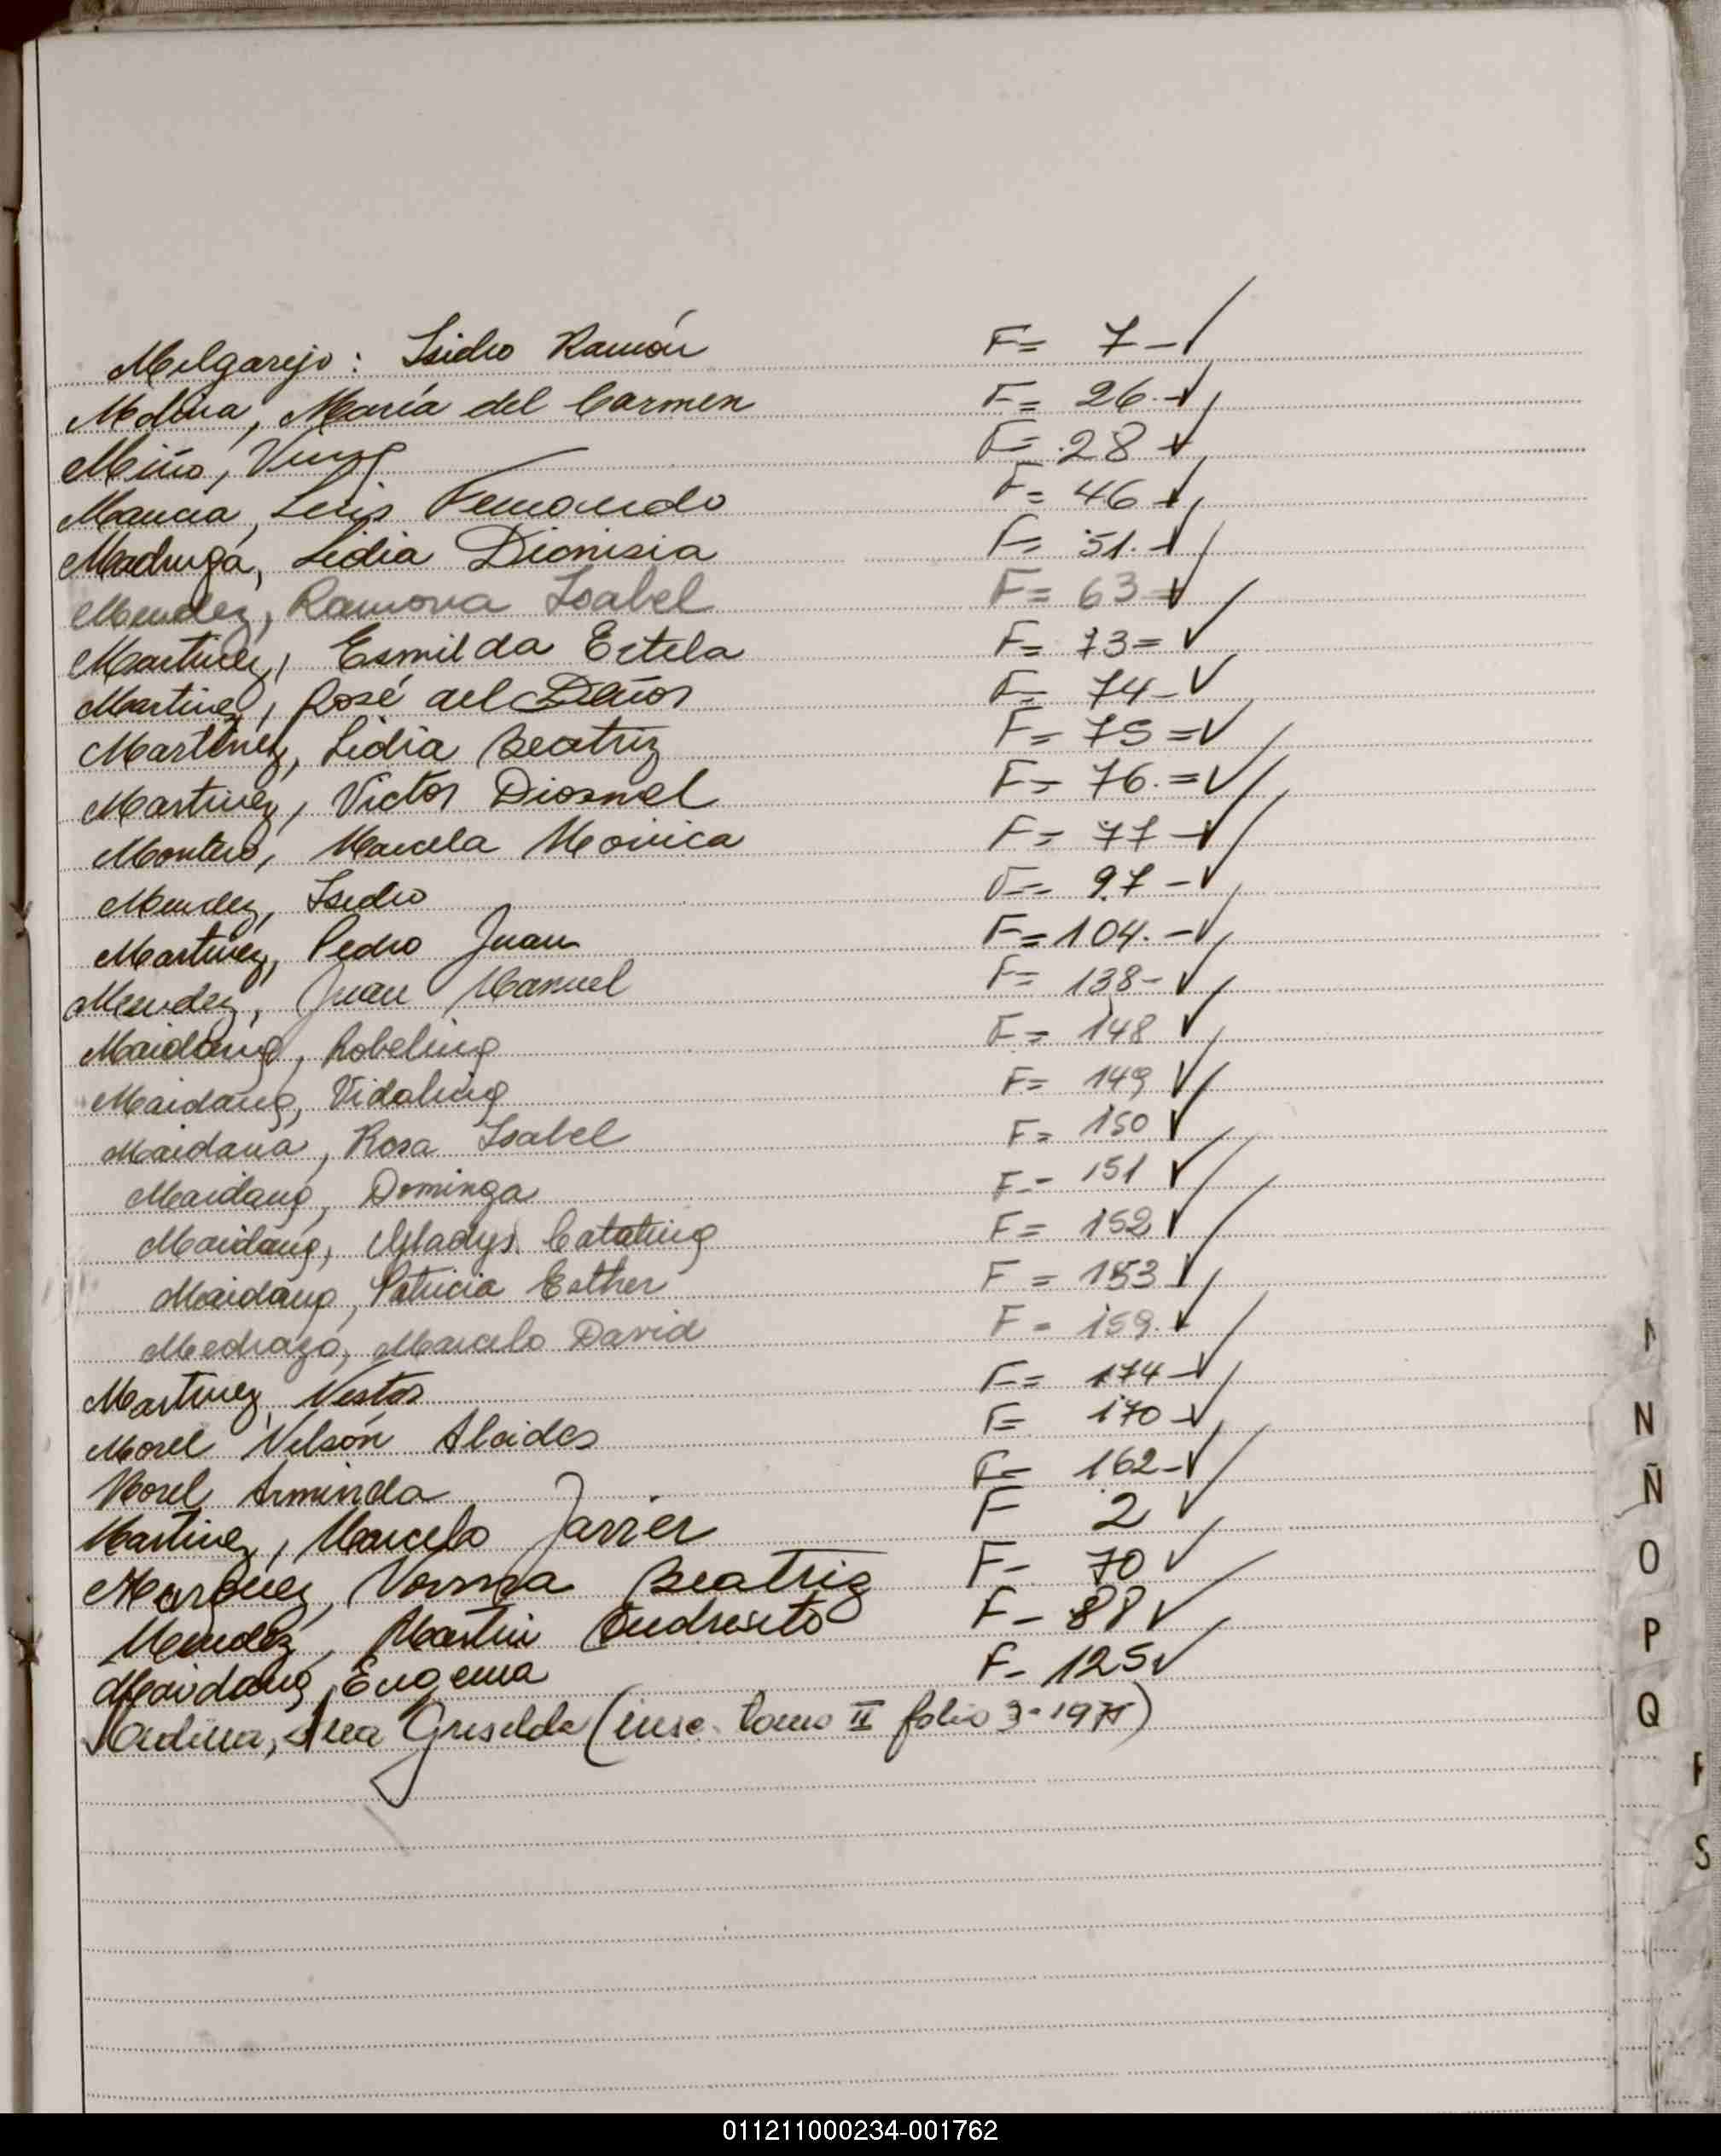 Melgarejo: Isidro Ramón F= 7-✓
Molina, María del Carmen F= 26.-✓
Miño, F= 28 ✓
Luis Fernando F= 46 ✓
Madruga, Lidia Dionisia F= 51.-✓
Mendez, Ramona Isabel F= 63=✓
Martinez, Esmilda Estela F= 73=✓
Martinez, José del F= 74-✓
Martinez, Lidia Beatriz F= 75=✓
Martinez, Victor Diosnel F= 76.=✓
Montero, Marcela Monica F= 77-✓
Mendez, Isidro F= 97-✓
Martinez, Pedro Juan F= 104.-✓
Mendez, Juan Manuel F= 138-✓
Maidana, Robelina F= 148 ✓
Maidana, Vidalina F= 149 ✓
Maidana, Rosa Isabel F= 150 ✓
Maidana, Dominga F.- 151 ✓
Maidana, Gladys Catalina F= 152 ✓
Maidana, Patricia Esther F= 153 ✓
Marcelo David F= 159.✓
Martinez, Nestor F= 174-✓
Morel Nelsón Alcides F= 170-✓
Morel Arminda F= 162-✓
Martinez, Marcelo Javier F 2 ✓
Marquez, Norma Beatriz F- 70 ✓
Mendez, Martin Andresito F- 88 ✓
Maidana, Eugenia F- 125 ✓
Medina, Ana Griselda (insc. tomo II folio 3-1971)
N
Ñ
O
P
Q
S
011211000234-001762